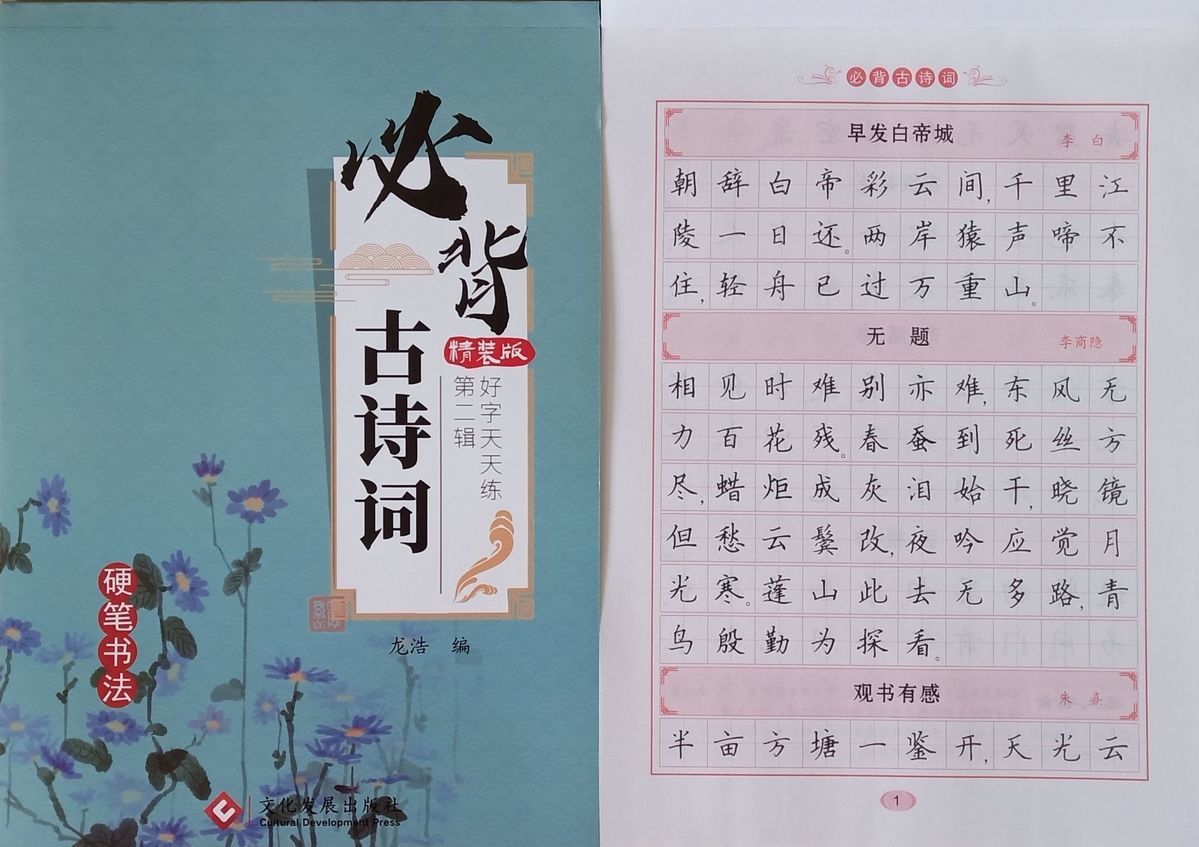 必背
古诗词
精装版
好字天天练
第二辑
硬笔书法
龙浩 编
文化发展出版社
Cultural Development Press
必背古诗词
早发白帝城
李白
朝辞白帝彩云间,千里江
陵一日还。两岸猿声啼不
住,轻舟已过万重山。
无题
李商隐
相见时难别亦难,东风无
力百花残。春蚕到死丝方
尽,蜡炬成灰泪始干,晓镜
但愁云鬓改,夜吟应觉月
光寒。蓬山此去无多路,青
鸟殷勤为探看。
观书有感
朱熹
半亩方塘一鉴开,天光云
1